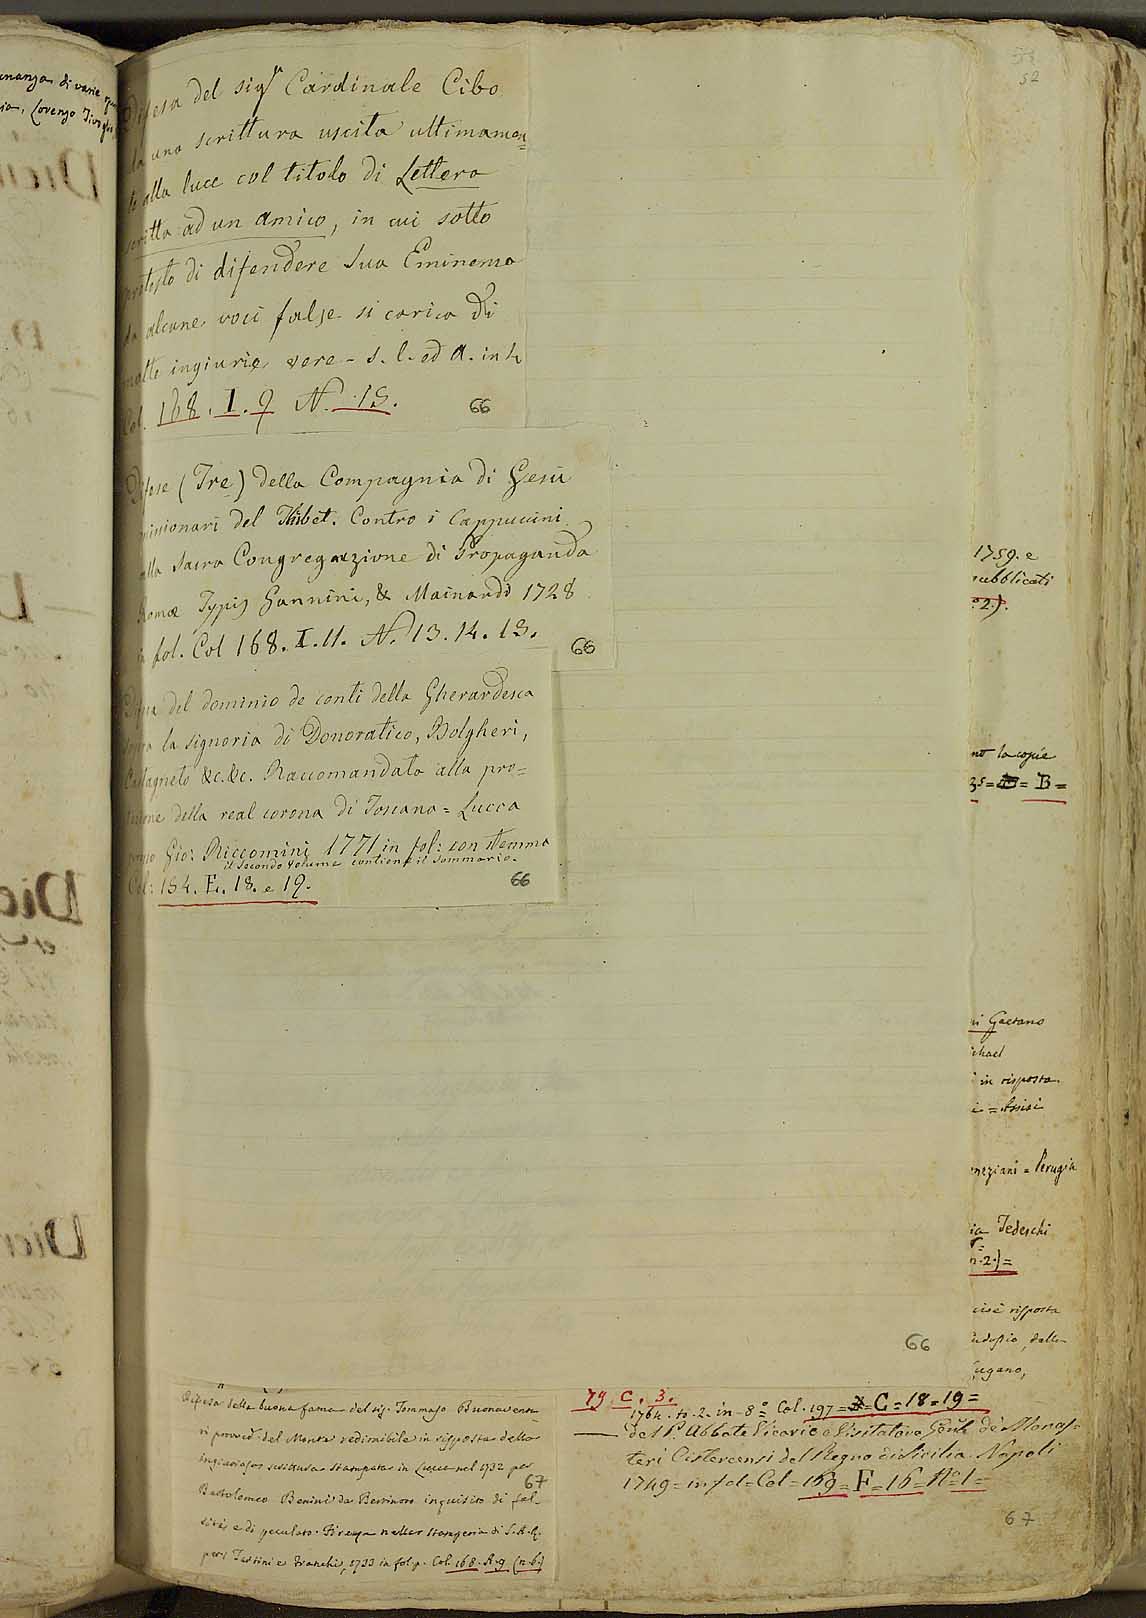 52
Difesa del sigr Cardinale Cibo
da una scrittura uscita ultimamen=
te alla luce col titolo di Lettera
scritta ad un amico, in cui sotto
pretesto di difendere Sua Eminenza
da alcune voci false si carica di
molte ingiurie vere - s. l. ed a. in 4
Col. 168. I. 9 N. 15.
66
Difese (Tre) della Compagnia di Gesù
missionari del Thibet. Contro i Cappuccini
alla Sacra Congregazione di Propaganda
Romæ Typis Gannini, & Mainardi 1728
in fol. Col 168. I. 11. N. 13. 14. 15.
66
Difesa del dominio de conti della Gherardesca
sopra la signoria di Donoratico, Bolgheri,
Castagneto &c. &c. Raccomandata alla pro=
tezione della real corona di Toscana = Lucca
presso Gio: Riccomini 1771 in fol: con stemma
il secondo volume contiene il sommario.
Col: 154. F. 18. e 19.
66
66
Difesa della buona fama del sig. Tommaso Buonaventu-
ri proved. del Monte redimibile in risposta della
ingiuriosa scrittura stampata in Lucca nel 1732 per
Bartolomeo Benini da Bertinoro inquisito di fal-
sità e di peculato. Firenze nella stamperia di S. A. R.
per i Tartini e Franchi, 1733 in fol. p. Col. 168. A. 9 (n. 6.)
67
79. C. 3.
1764. to. 2. in-8.º Col. 197 = C = 18 = 19 =
— del P. Abbate Vicario e Visitatore Gen.le de' Monas=
teri Cistercensi del Regno di Sicilia. Napoli
1749 = in fol = Col = 169 = F = 16 = Nº 1 =
67
di varie
Lorenzo
1759. e
pubblicati
2.).
la copie
= B =
Gaetano
in risposta
= Assisi
= Perugia
Tedeschi
2.) =
risposta
dalla